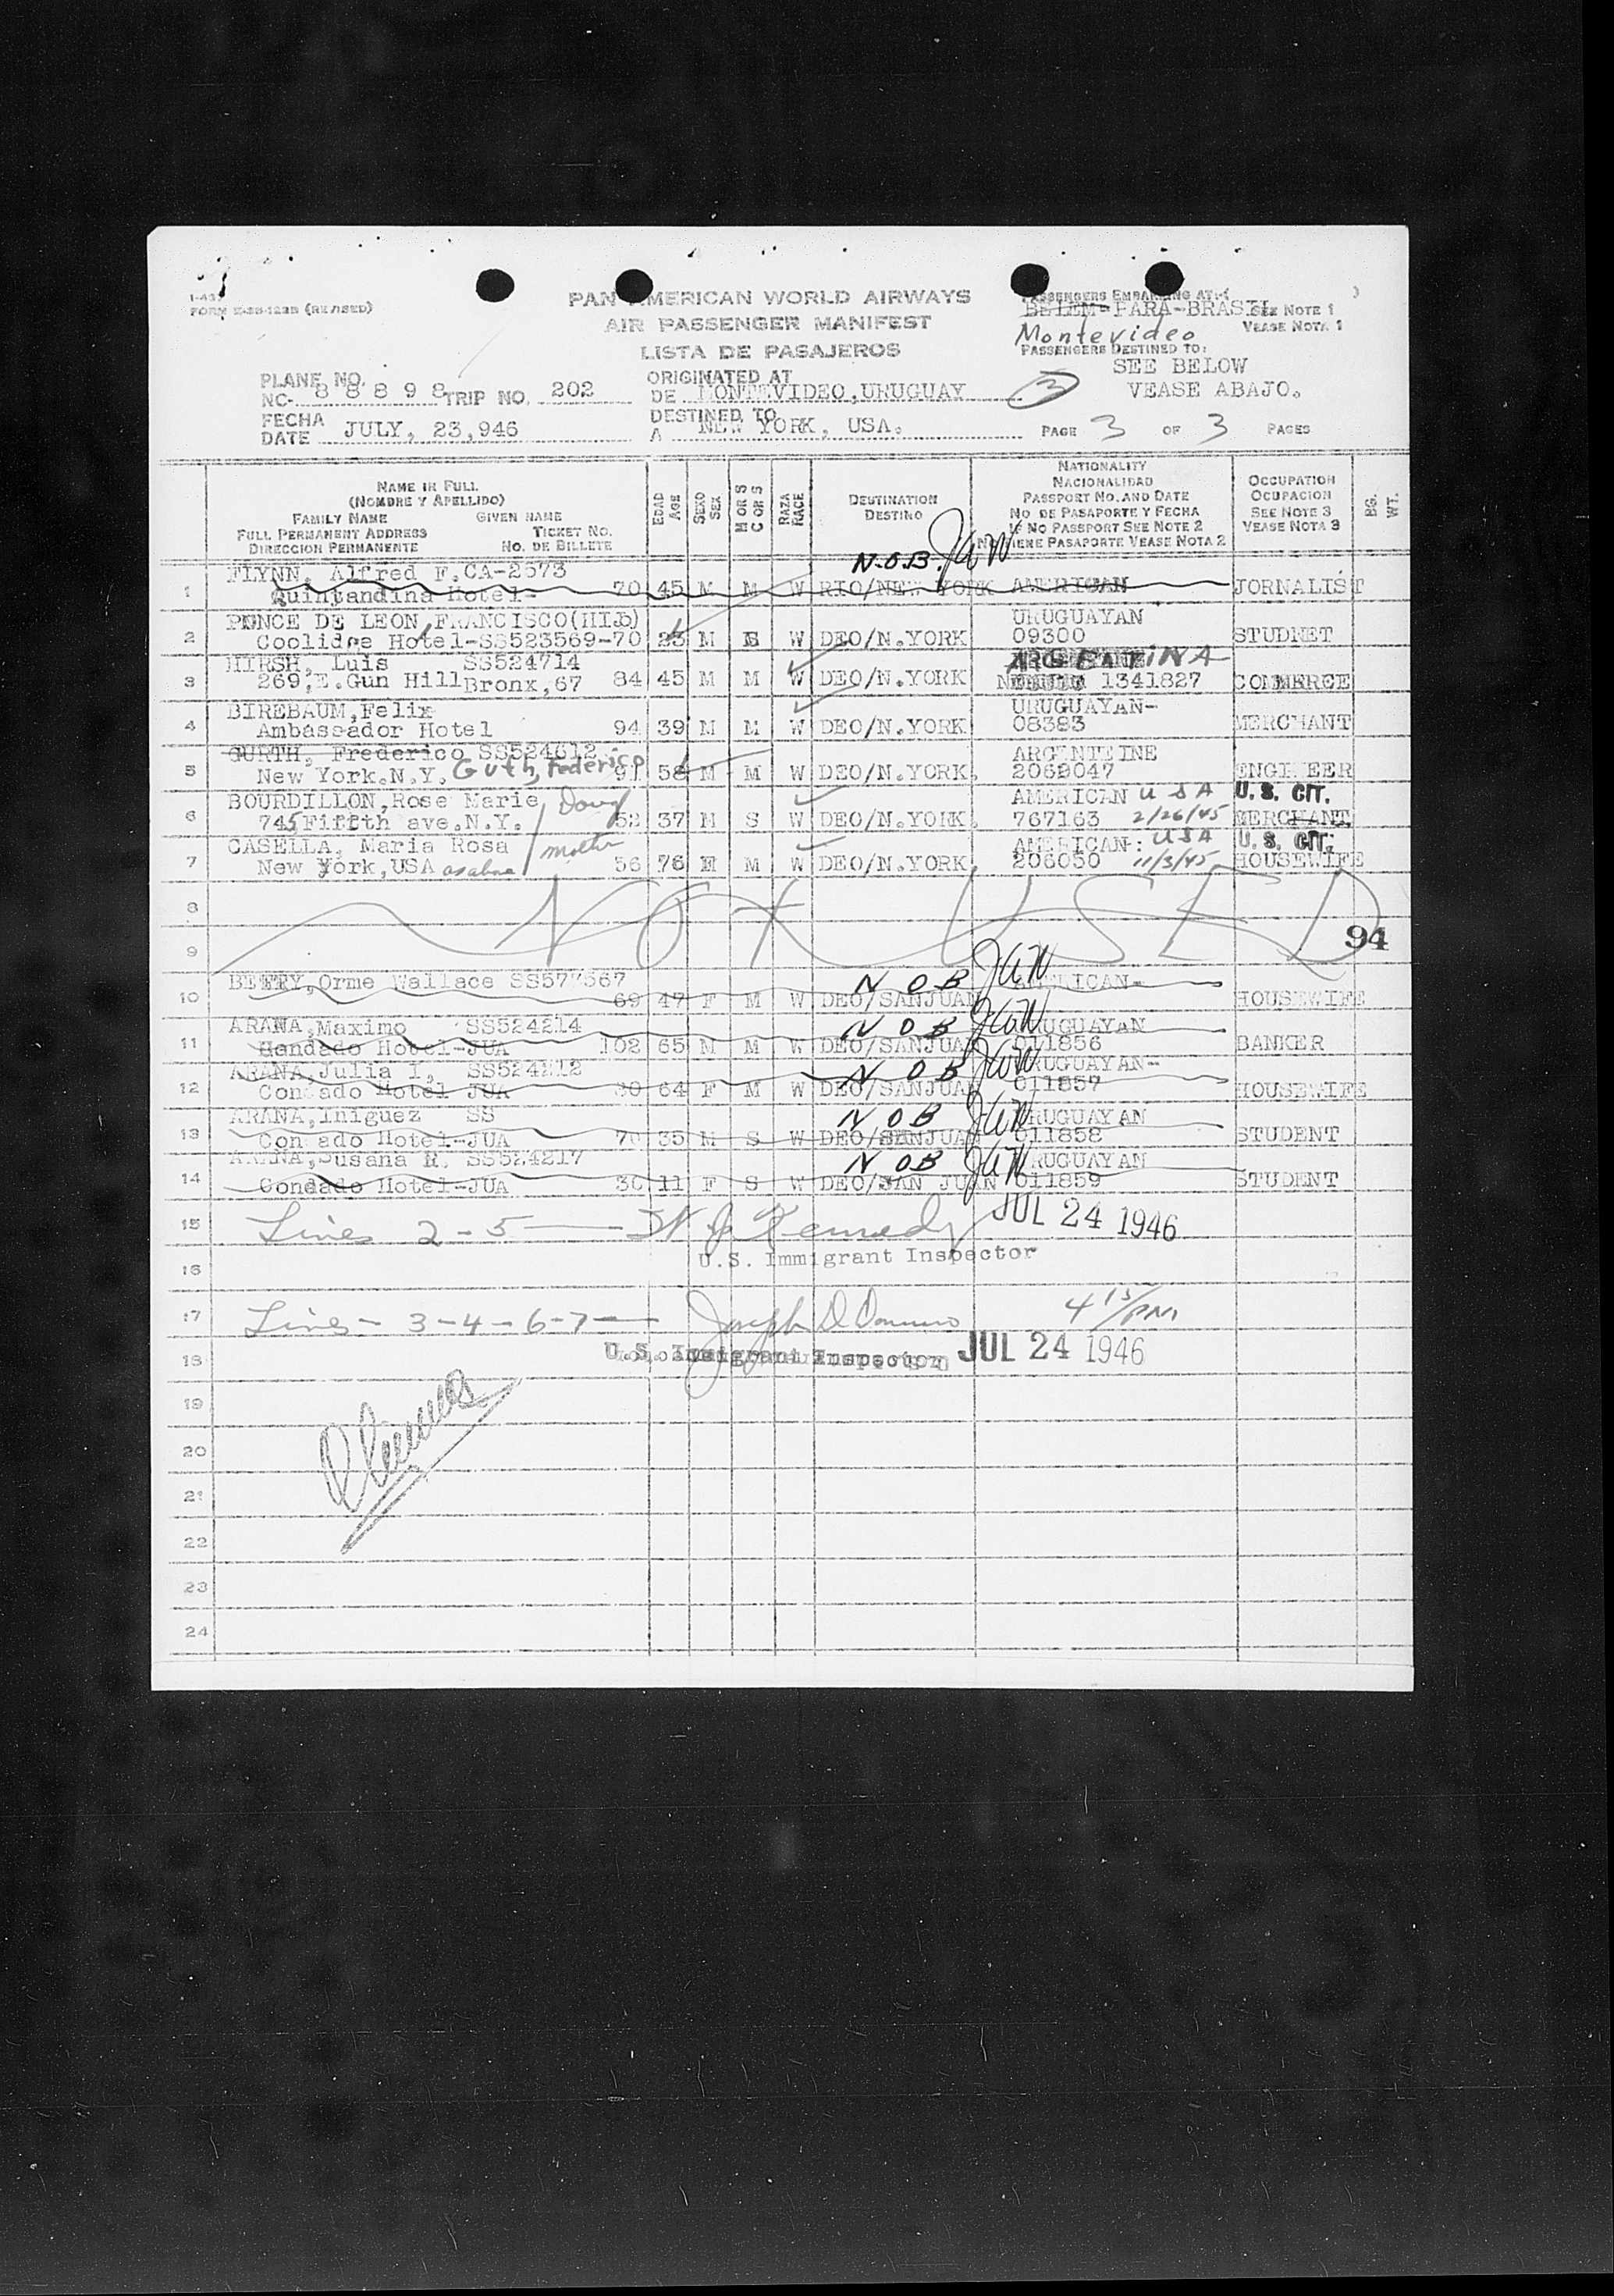 I-43
FORM E-SB-123B (REVISED)
PAN AMERICAN WORLD AIRWAYS
AIR PASSENGER MANIFEST
LISTA DE PASAJEROS
PASSENGERS EMBARKING AT:
BELEM-PARA-BRASIL SEE NOTE 1
Montevideo VEASE NOTA 1
PASSENGERS DESTINED TO:
SEE BELOW
VEASE ABAJO.
PLANE NO.
NC- 88898 TRIP NO. 202
ORIGINATED AT
DE MONTEVIDEO,URUGUAY
3
FECHA
DATE JULY, 23,946
DESTINED TO
A NEW YORK, USA.
PAGE 3 OF 3 PAGES
NAME IN FULL
(NOMBRE Y APELLIDO)
FAMILY NAME GIVEN NAME
FULL PERMANENT ADDRESS TICKET NO.
DIRECCION PERMANENTE NO. DE BILLETE
EDAD AGE
SEXO SEX
M OR S C OR S
RAZA RACE
DESTINATION
DESTINO
NATIONALITY
NACIONALIDAD
PASSPORT NO. AND DATE
NO DE PASAPORTE Y FECHA
IF NO PASSPORT SEE NOTE 2
NO TIENE PASAPORTE VEASE NOTA 2
OCCUPATION
OCUPACION
SEE NOTE 3
VEASE NOTA 3
BG. WT.
N.O.B. JaW
FLYNN, Alfred F.CA-2573
1 Quintandina Hotel- 70 45 M M W RIO/NEW YORK AMERICAN JORNALIST
PONCE DE LEON FRANCISCO(HIJO) URUGUAYAN
2 Coolidge Hotel-SS523569-70 23 M S W DEO/N.YORK 09300 STUDNET
HIRSH, Luis SS524714 ARGENTINA
3 269,E.Gun Hill Bronx,67 84 45 M M W DEO/N.YORK 1341827 COMMERCE
BIREBAUM,Felix URUGUAYAN-
4 Ambassador Hotel 94 39 M M W DEO/N.YORK 08383 MERCHANT
GURTH, Frederico SS524612 ARGENTEINE
5 New York.N.Y. Guth, Federico 91 58 M M W DEO/N.YORK. 2062047 ENGINEER
BOURDILLON,Rose Marie Daug AMERICAN USA U.S. CIT.
6 745 Fifth ave.N.Y. 52 37 M S W DEO/N.YORK. 767163 2/26/45 MERCHANT
CASELLA, Maria Rosa mother AMERICAN: USA U.S. CIT.
7 New York,USA as above 56 76 F M W DEO/N.YORK. 206050 11/3/45 HOUSEWIFE
8
NOT USED
9 94
BETTY,Orme Wallace SS577567 N O B JaW AMERICAN-
10 69 47 F M W DEO/SANJUAN HOUSEWIFE
ARANA,Maximo SS524214 N O B JaW URUGUAYAN
11 Condado Hotel-JUA 102 65 M M W DEO/SANJUAN 011856 BANKER
ARANA,Julia I, SS524212 N O B JaW URUGUAYAN-
12 Condado Hotel JUA 80 64 F M W DEO/SANJUAN 011857 HOUSEWIFE
ARANA,Iniguez SS N O B JaW URUGUAYAN
13 Condado Hotel-JUA 70 35 M S W DEO/SANJUAN 011858 STUDENT
ARANA,Susana R. SS524217 N O B JaW URUGUAYAN
14 Condado Hotel-JUA 30 11 F S W DEO/SAN JUAN 011859 STUDENT
15 Lines 2-5 W J Kennedy JUL 24 1946
U.S. Immigrant Inspector
16
17 Lines - 3-4-6-7 Joseph D 4 15/PM
18 U.S. Immigrant Inspector JUL 24 1946
19
20
21
22
23
24